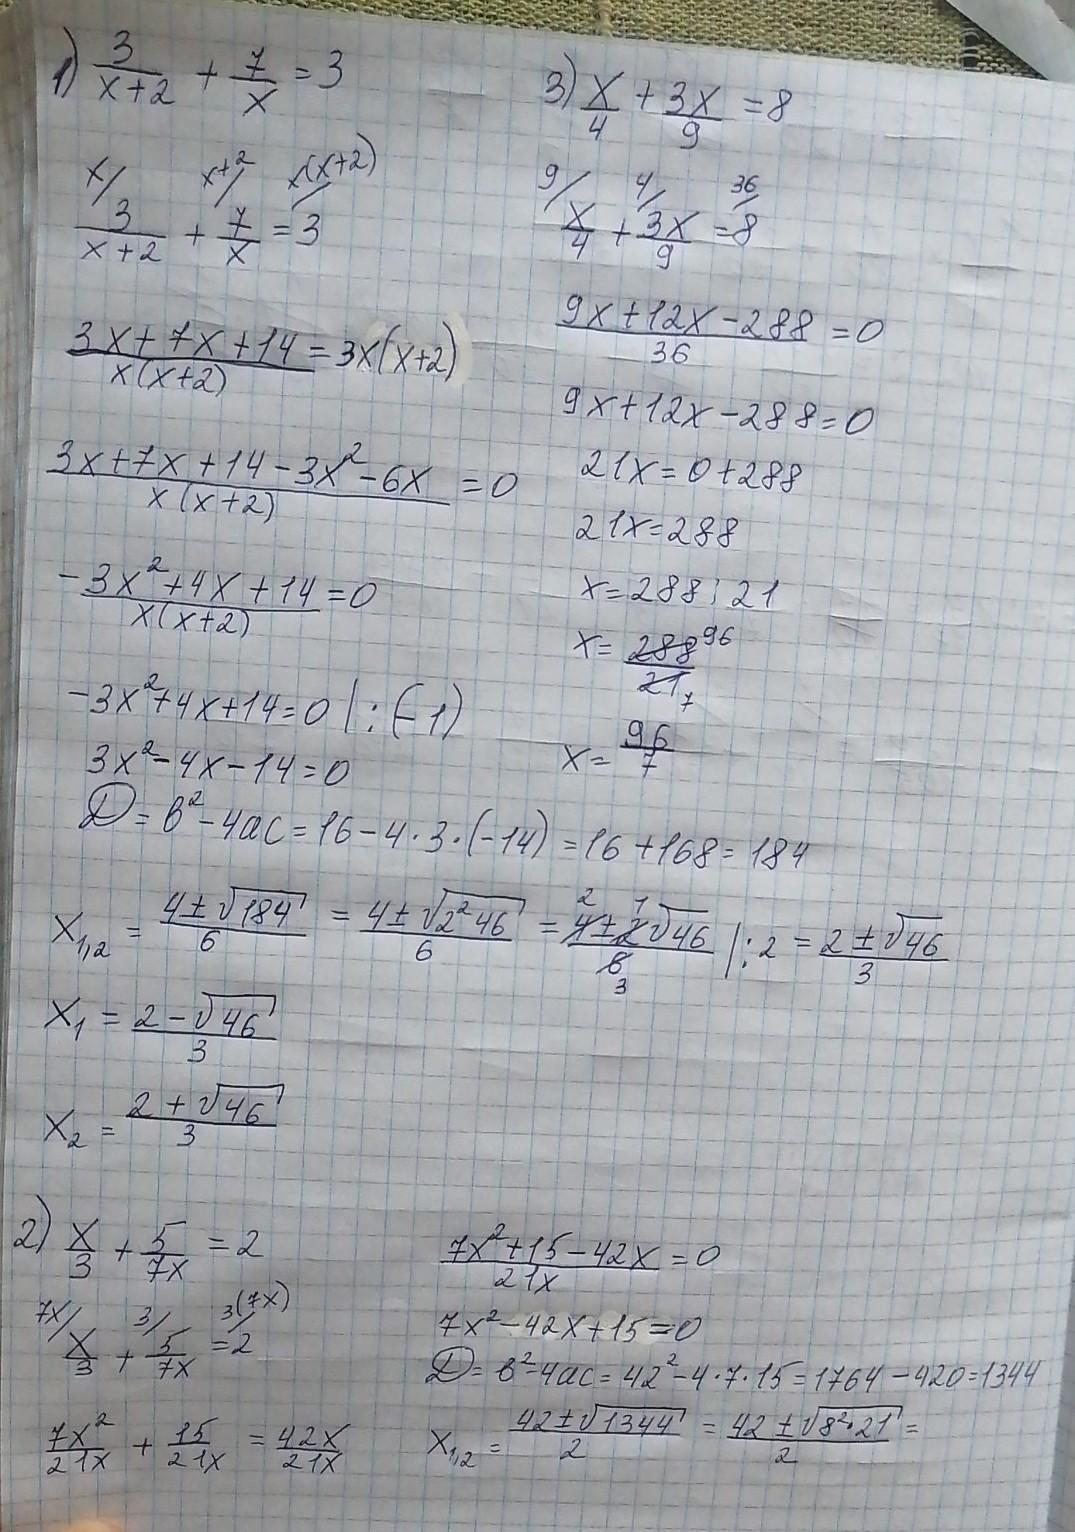 1) 3/(x+2) + 7/x = 3
x/ x+2/ x(x+2)/
3/(x+2) + 7/x = 3
(3x+7x+14)/(x(x+2)) = 3x(x+2)
(3x+7x+14-3x²-6x)/(x(x+2)) = 0
(-3x²+4x+14)/(x(x+2)) = 0
-3x²+4x+14=0 |:(-1)
3x²-4x-14=0
D = b²-4ac = 16-4·3·(-14) = 16+168 = 184
x₁,₂ = (4±√184)/6 = (4±√(2²46))/6 = (4±2√46)/6 |:2 = (2±√46)/3
2 1
3
x₁ = (2-√46)/3
x₂ = (2+√46)/3
3) x/4 + 3x/9 = 8
9/ 4/ 36/
x/4 + 3x/9 = 8
(9x+12x-288)/36 = 0
9x+12x-288=0
21x=0+288
21x=288
x=288:21
x= 288/21
96
7
x= 96/7
2) x/3 + 5/(7x) = 2
7x/ 3/ 3(7x)/
x/3 + 5/(7x) = 2
7x²/(21x) + 15/(21x) = 42x/(21x)
(7x²+15-42x)/(21x) = 0
7x²-42x+15=0
D = b²-4ac = 42²-4·7·15 = 1764-420 = 1344
x₁,₂ = (42±√1344)/2 = (42±√(8²·21))/2 =